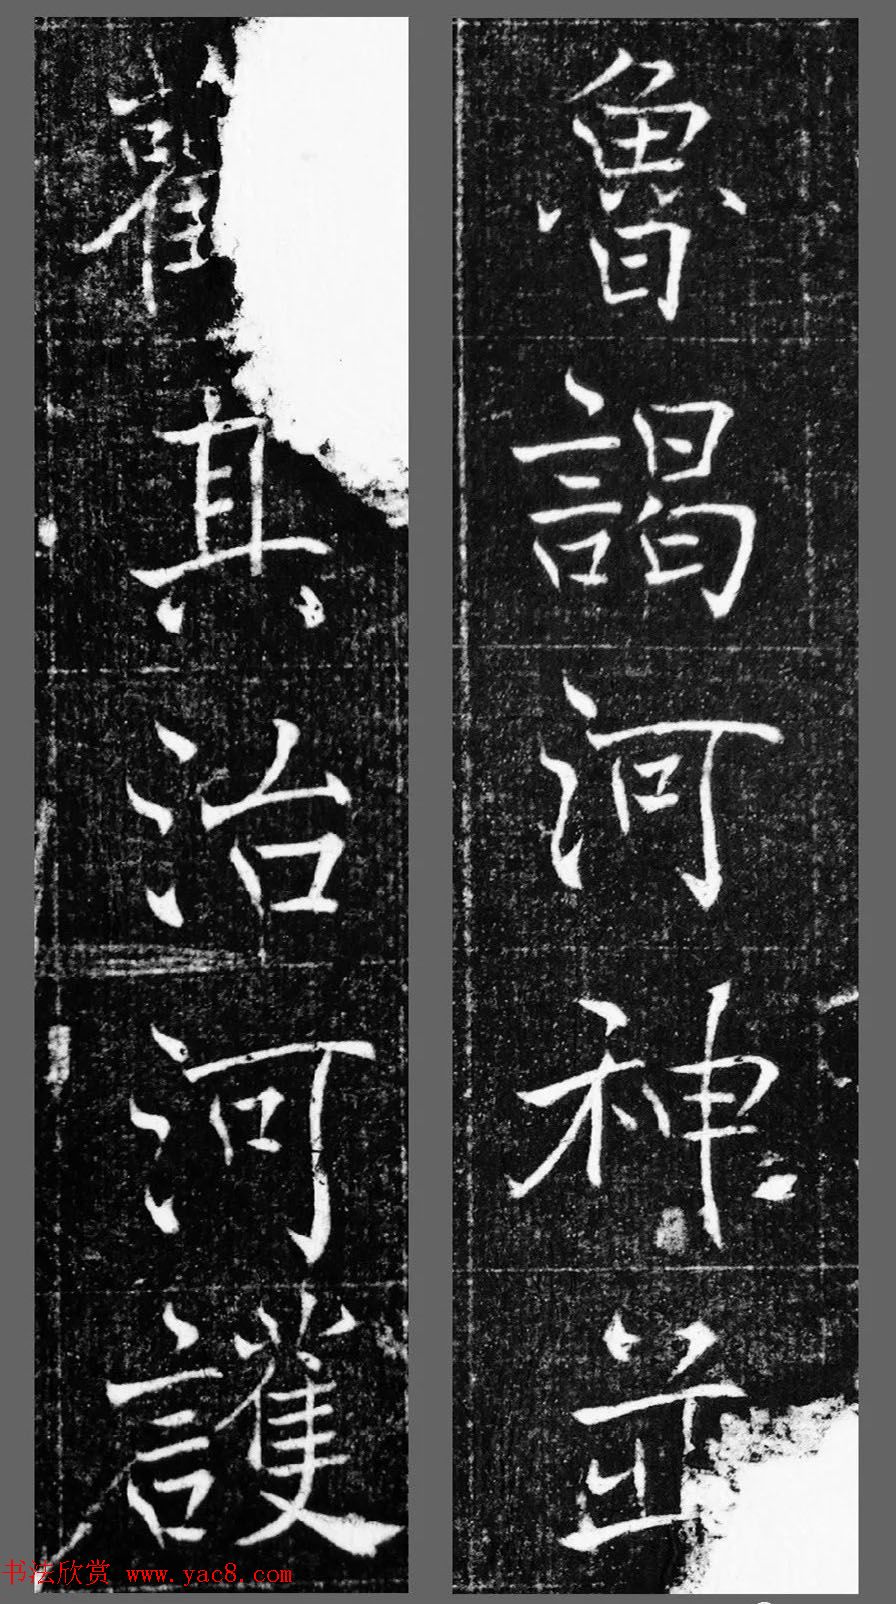 魯謁河神並
真治河護
书法欣赏 www.yac8.com